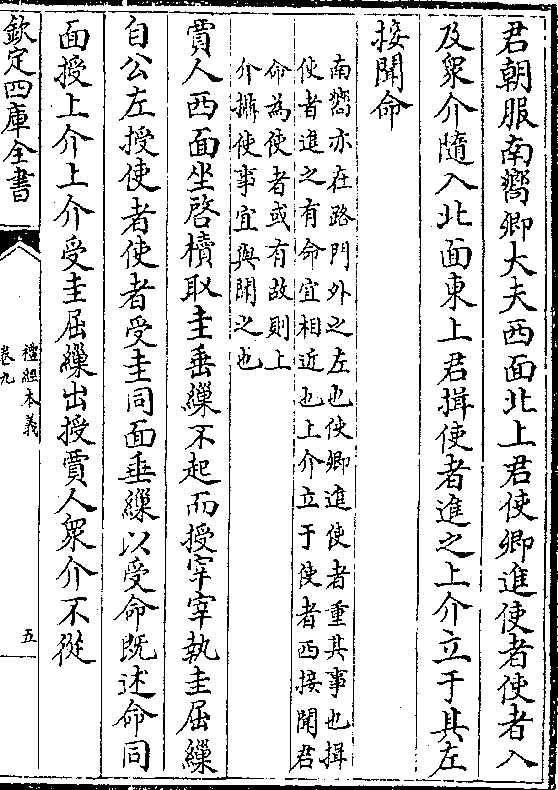 君朝服南嚮卿大夫西面北上君使卿進使者使者入
及衆介隨入北面東上君揖使者進之上介立于其左
接聞命
南嚮亦在路門外之左也使卿進使者重其事也揖
使者進之有命宜相近也上介立于使者西接聞君
命為使者或有故則上
介攝使事宜與聞之也
賈人西面坐啓櫝取圭垂繅不起而授宰宰執圭屈繅
自公左授使者使者受圭同面垂繅以受命既述命同
面授上介上介受圭屈繅出授賈人衆介不從
欽定四庫全書
禮經本義
卷九
五